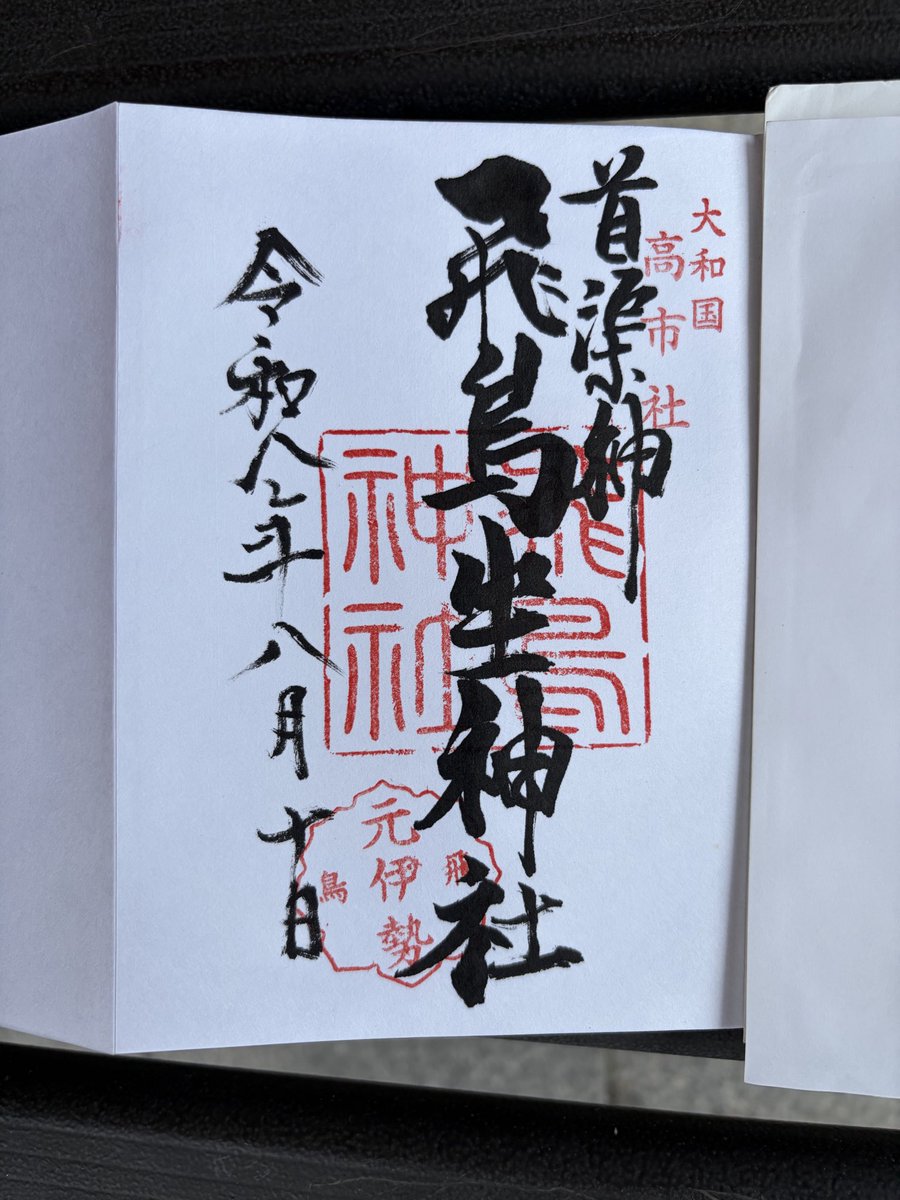 大和国
高市社
首渠神
飛鳥坐神社
飛鳥
神社
飛鳥
元伊勢
令和八年八月十日